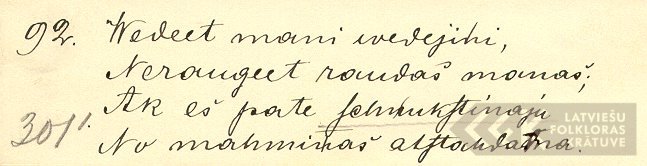 92. Wedeet mani wedejihi,
Neraugeet raudaš manaš;
Ak eš pate schnukstinaju
301¹. No mahminaš atstahdama.
LATVIEŠU
FOLKLORAS
KRĀTUVE